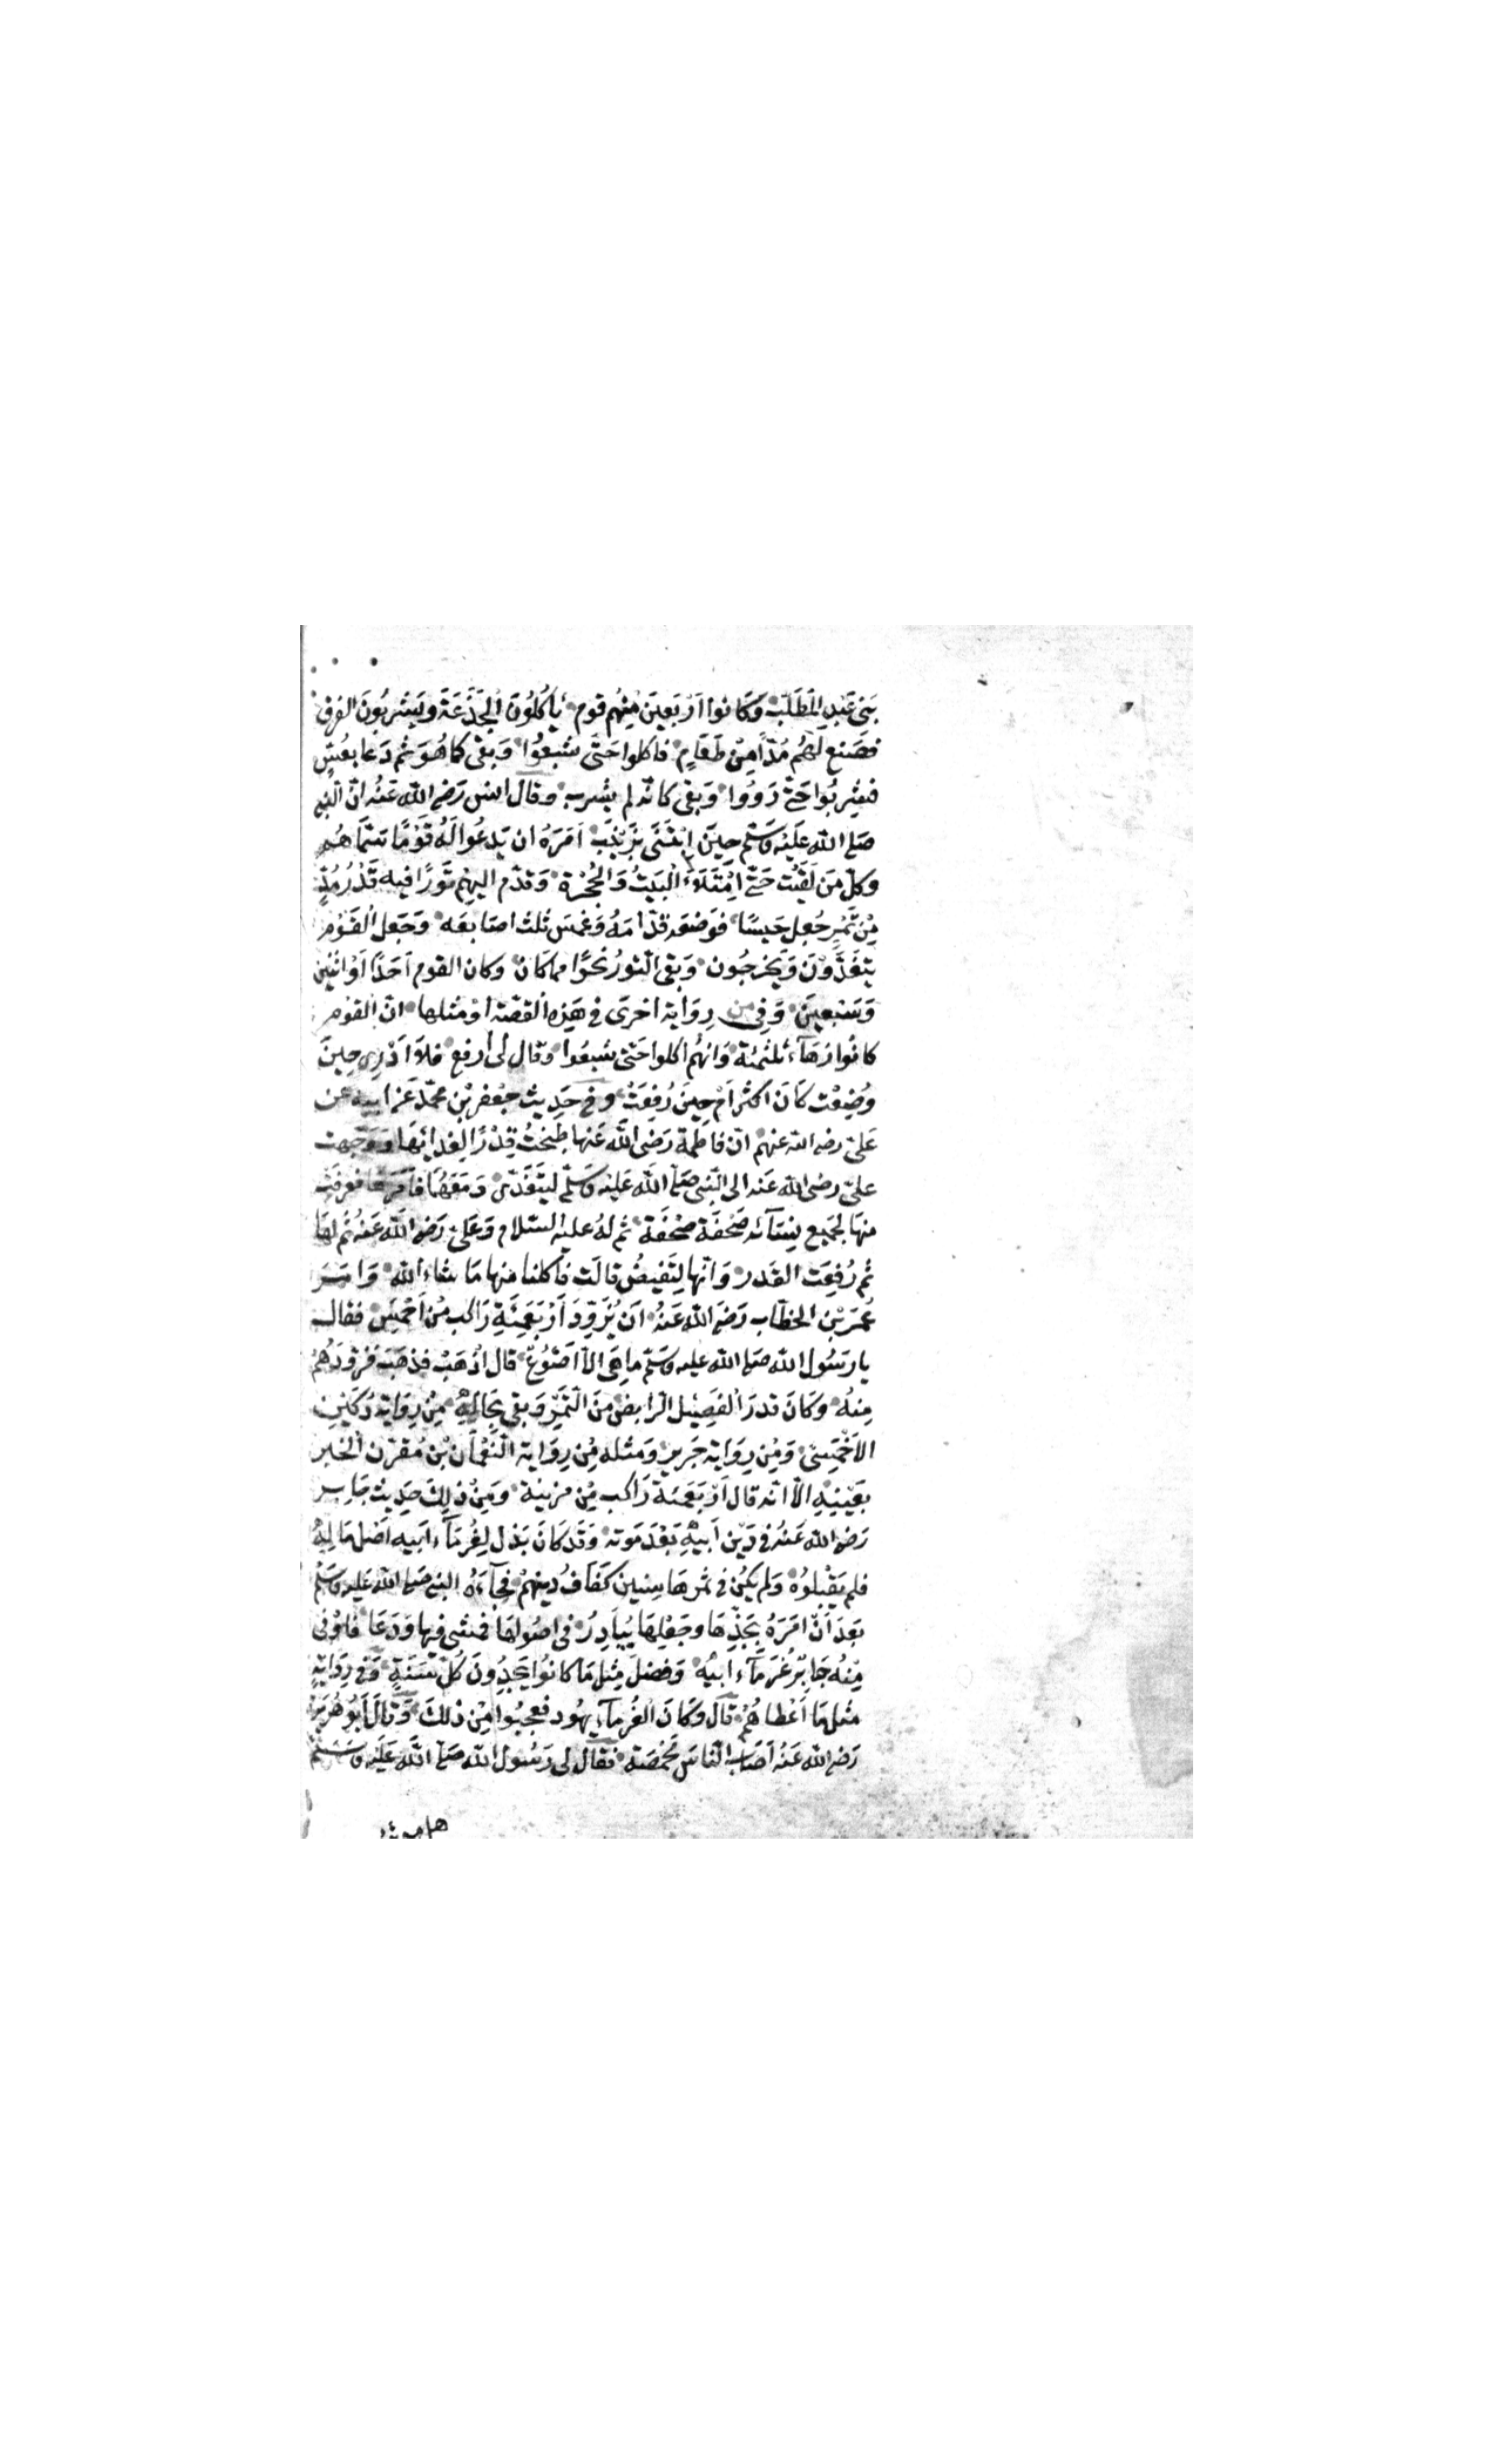 بَنى عَبْدِ المُطَّلِبْ وَكَانوا اَرْبَعينَ مِنْهُم قوم يَأكُلُونَ الجَذَعَةَ وَيَشرَبُونَ الفرق
فصَنع لَهُم مُدًّا مِنْ طَعَامٍ فاكلوا حَتّى شبعُوا وَبقى كما هُوَ ثم دَعا بعُسٍّ
فشرِبُوا حَتّى رَوُوا وَبقى كانه لم يشرب وقال انس رَضِىَ الله عَنْهُ انّ النبى
صَلى الله عَلَيْه وَسَلّم حينَ ابْتَنَى بزَيْنَبَ اَمَرَهُ ان يَدعُوا لَهُ قَوْمًا سَمّاهُم
وكلّ مَن لَقيْت حَتّى امْتَلَاءَ البَيتُ وَالحُجْرَة وَقدّم اليهِم تَورًا فيه قَدْرُ مُدٍّ
مِنْ تَمْرٍ جُعِل حَيسًا فوَضعَه قدّامَهُ وَغمسَ ثلث اصَابعَه وَجَعل القَوْم
يتغَدَّوْنَ وَيَخرجُون وَبقى التورُ نحْوًا مما كانَ وكان القوم اَحَدًا اَوْ اثنين
وَسَبْعينَ وَفى من رِوَاية اخرَى فى هَذِه القصّة اوْ مثلها انّ القوْم
كانُوا زهَآءَ ثلثمئة وَانهُم اكلوا حَتّى شبعُوا وَقال لى ارفع فلا اَدْرِى حِينَ
وُضِعْت كَانَ اكثر اَمْ حِينَ رُفِعَتْ وفى حَديث جَعْفر بْن محمّد عَن ابيه عن
عَلىّ رضى الله عنهم انّ فاطمة رَضى الله عَنها طبَختُ قِدْرًا لغدائهَا وَوَجّهت
علىّ رضى الله عَنه الى النّبى صَلى الله عَليْه وَسَلّم ليتغَدّى مَعَهُمَا فامَرَهَا فغرفت
منهَا لجَميع نِسَآئه صَحْفَة صَحْفَة ثم لهُ عليه السّلام وَعَلىّ رَضى الله عَنهُ ثُم لهَا
ثم رُفِعَت القدر وَانّها لتَفيضُ قالَت فاكلنا منها مَا شاء الله وَامَرَ
عُمَرَ بْن الخطّاب رَضىَ الله عَنهُ اَن يُزَوِّدَ اَرْبَعَمِئَةِ رَاكب مِنْ اَحْمَس فقال
يا رَسُول الله صَلى الله عليه وَسَلم ما هىَ الا اَصْوُعٌ قال اذْهَبْ فذهَبَ فزوَدَهُمْ
مِنهُ وكَانَ قدرَ الفَصِيل الرابض مِنَ التمْر وَبقى بحَالِهِ مِنْ رِوَاية دُكَيْن
الاَحْمَسِىّ وَمِنْ رِوَاية جَرير وَمثله مِن رِوَاية النّعْمَان بْن مُقَرّن الخبر
بعَيْنِهِ الا انّه قال اَرْبَعَمئة رَاكب مِن مزينة وَمِنْ ذلِكَ حَدِيث جَابر
رَضى الله عَنهُ فى دَيْن اَبيْهِ بَعْدَ مَوته وَقد كَانَ بَذل لِغُرمَآءِ ابيه اَصْل مَالِهِ
فلم يَقبلوُهُ وَلم يكُن فى ثمَرها سنين كفَافُ دينهمْ فجآءَهُ النبى صَلى الله عَليه وَسَلّم
بَعدَ اَنْ اَمَرَهُ بجَذِّهَا وجَعْلِهَا بَيَادِرُ فى اصُولهَا فمشى فيها وَدَعَا فاوْفى
مِنهُ جَابِرٌ غُرَمَآءَ ابيْهِ وَفضلَ مِثل مَا كانوُا يَجدونَ كُلّ سَنَةٍ وَفى رِوَايَةٍ
مثل مَا اَعْطاهُمْ قال وَكَانَ الغُرمآء يهُود فعجبُوا مِنْ ذلكَ وَقالَ اَبُو هُرَيْرَةَ
رَضى الله عَنهُ اَصَابَ النّاسَ مَخْمَصَة فقال لى رَسُول الله صَلى الله عَلَيْه وَسَلّم
هل من شئ